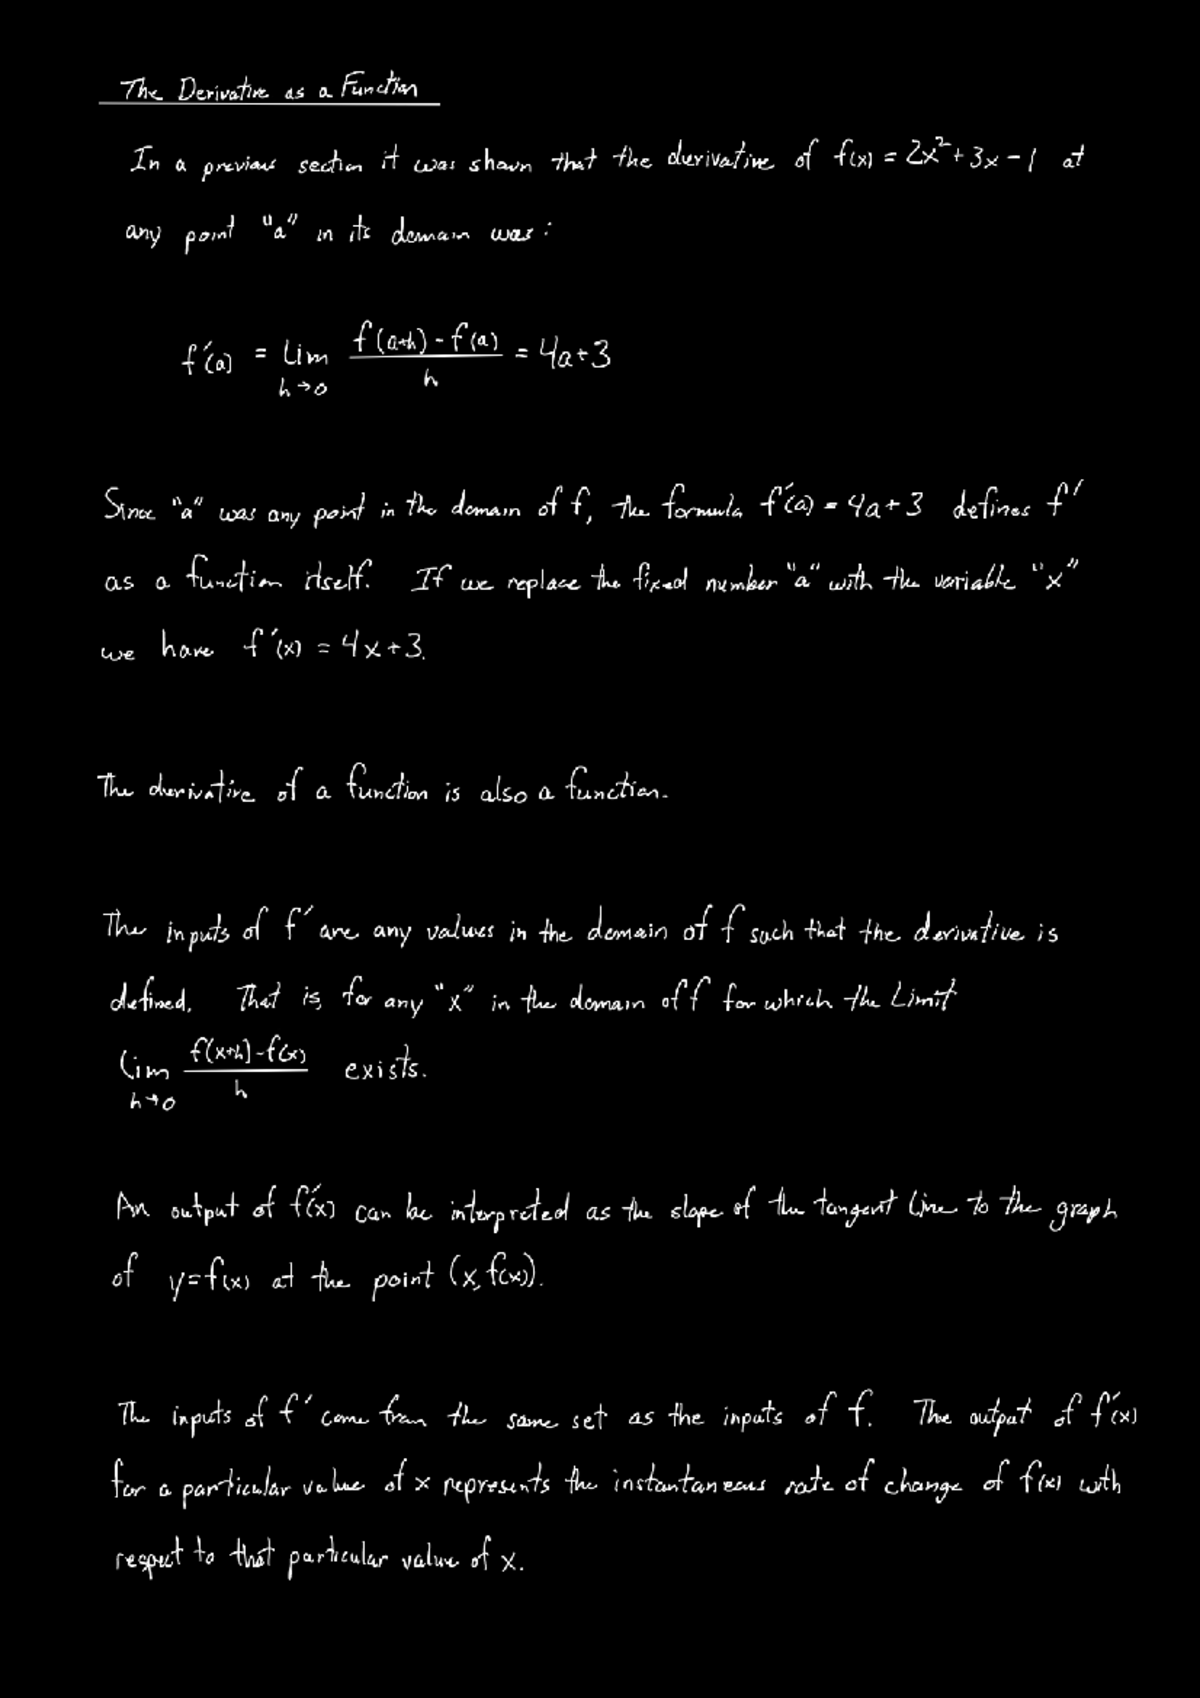 The Derivative as a Function
In a previous section it was shown that the derivative of f(x) = 2x² + 3x - 1 at
any point "a" in its domain was:
f'(a) = lim h→0 (f(a+h) - f(a))/h = 4a+3
Since "a" was any point in the domain of f, the formula f'(a) = 4a + 3 defines f'
as a function itself. If we replace the fixed number "a" with the variable "x"
we have f'(x) = 4x + 3.
The derivative of a function is also a function.
The inputs of f' are any values in the domain of f such that the derivative is
defined. That is, for any "x" in the domain of f for which the Limit
lim h→0 (f(x+h) - f(x))/h exists.
An output of f'(x) can be interpreted as the slope of the tangent line to the graph
of y=f(x) at the point (x, f(x)).
The inputs of f' come from the same set as the inputs of f. The output of f'(x)
for a particular value of x represents the instantaneous rate of change of f(x) with
respect to that particular value of x.